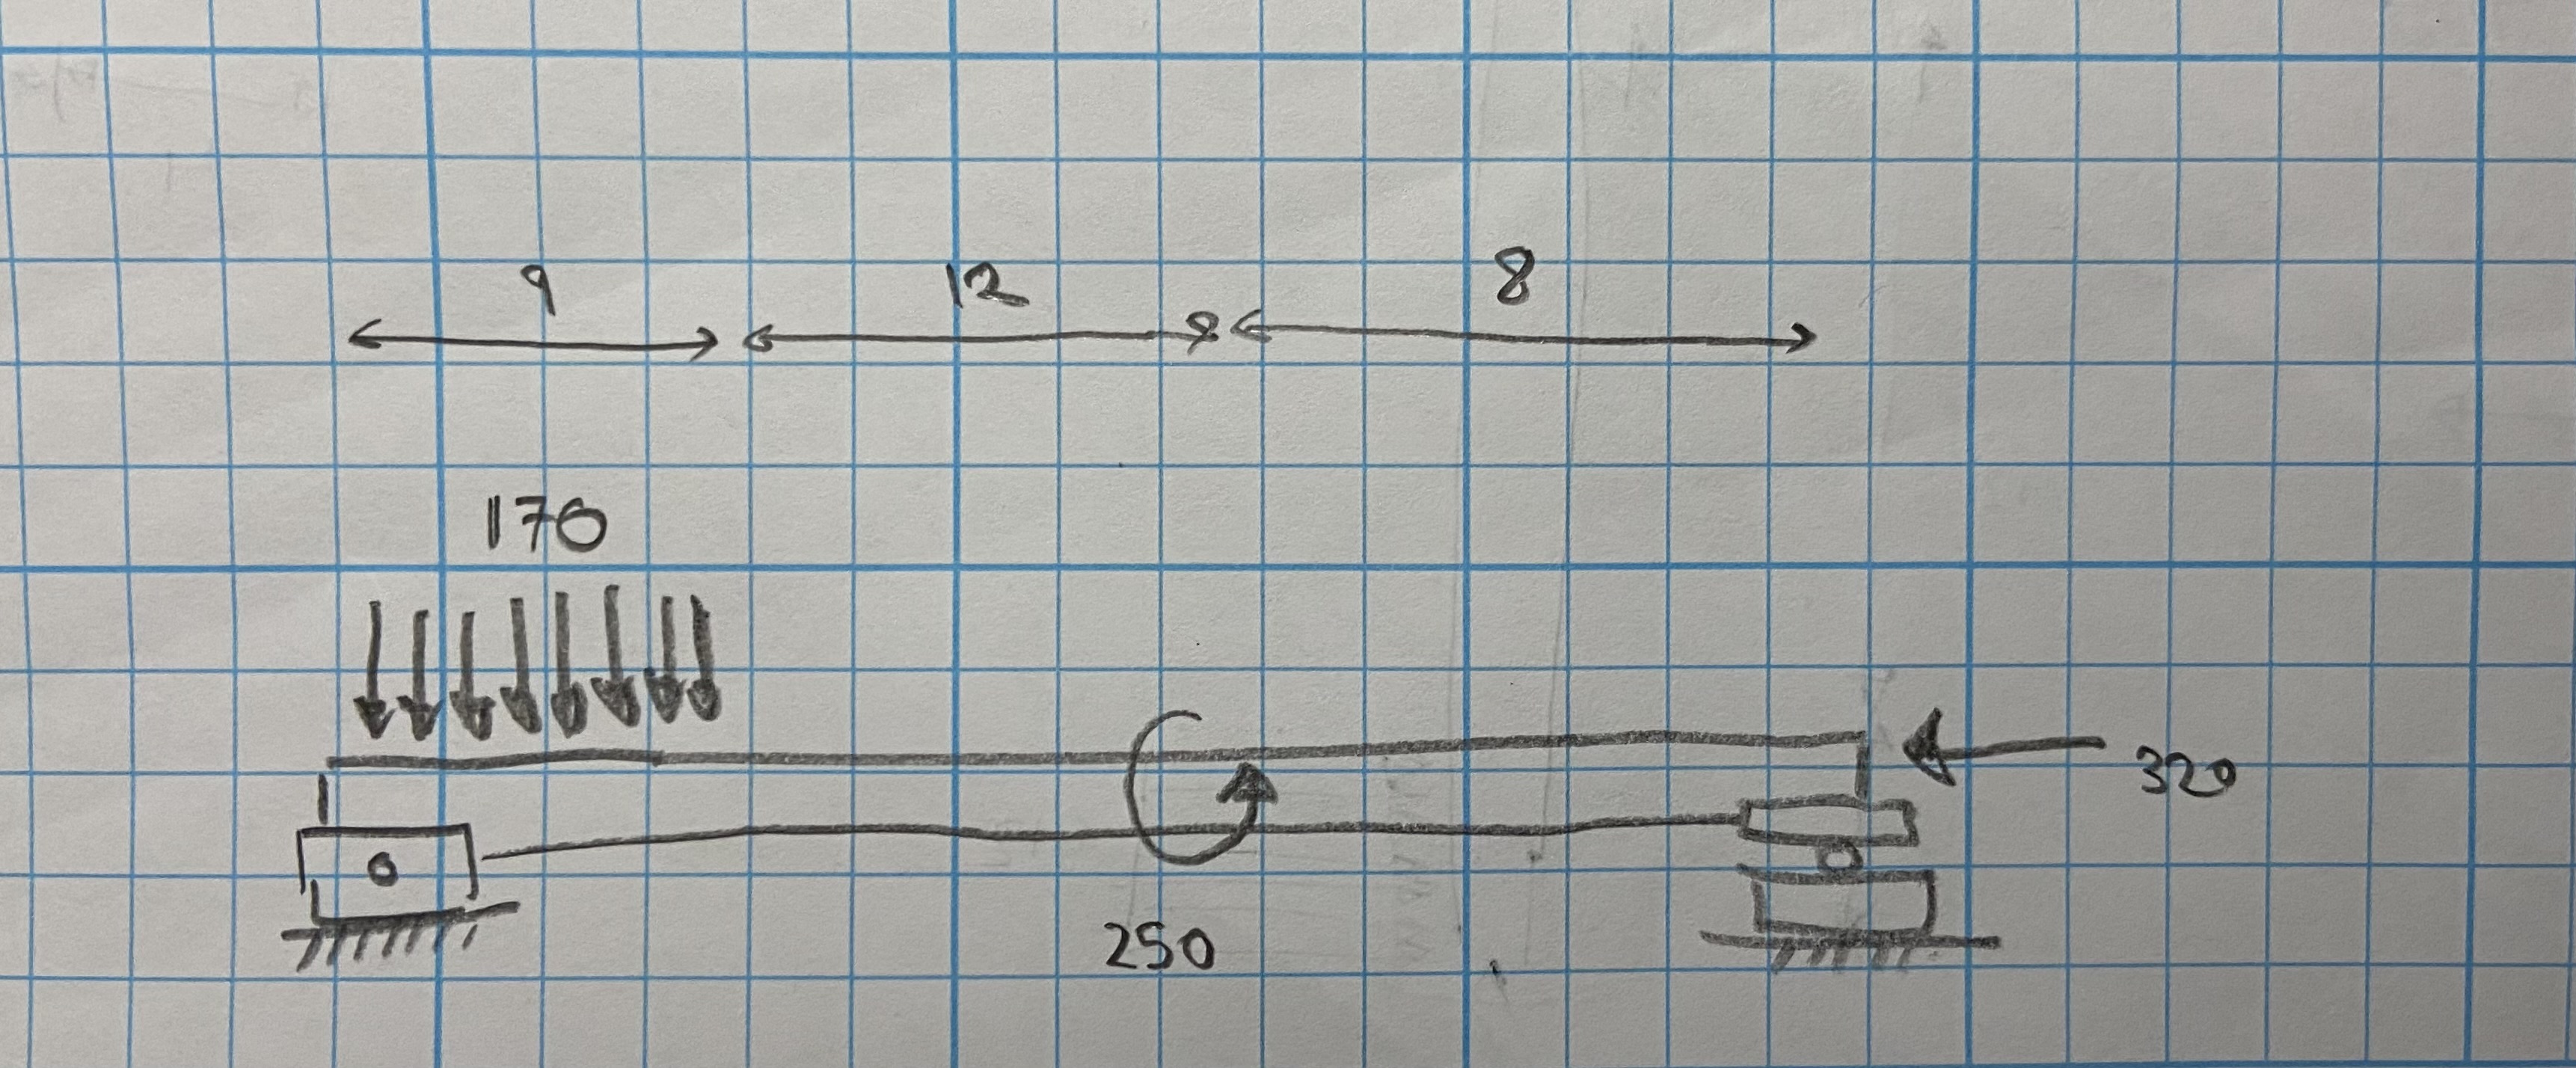 9 12 8
170
320
250